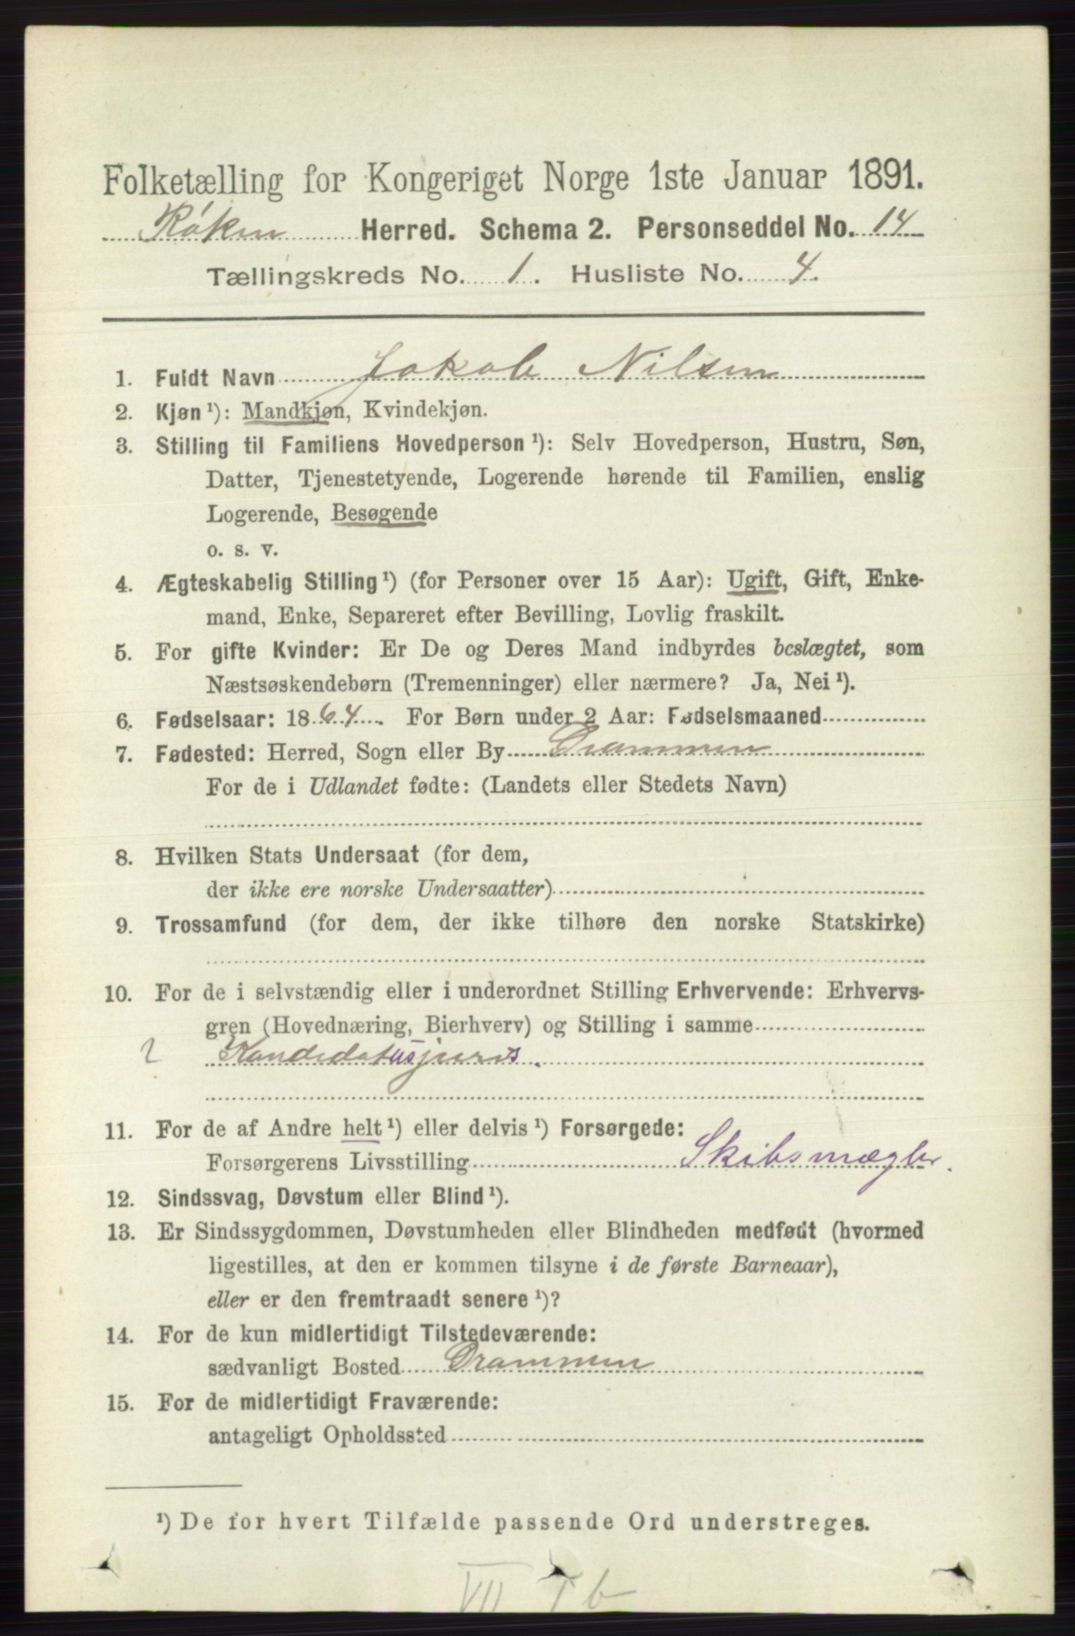 Folketælling for Kongeriget Norge 1ste Januar 1891.
Røken Herred. Schema 2. Personseddel No. 14
Tællingskreds No. 1. Husliste No. 4.
1. Fuldt Navn Jakob Nilsen
2. Kjøn ¹): Mandkjøn, Kvindekjøn.
3. Stilling til Familiens Hovedperson ¹): Selv Hovedperson, Hustru, Søn,
Datter, Tjenestetyende, Logerende hørende til Familien, enslig
Logerende, Besøgende
o. s. v.
4. Ægteskabelig Stilling ¹) (for Personer over 15 Aar): Ugift, Gift, Enke-
mand, Enke, Separeret efter Bevilling, Lovlig fraskilt.
5. For gifte Kvinder: Er De og Deres Mand indbyrdes beslægtet, som
Næstsøskendebørn (Tremenninger) eller nærmere? Ja, Nei ¹).
6. Fødselsaar: 1864. For Børn under 2 Aar: Fødselsmaaned
7. Fødested: Herred, Sogn eller By Drammen
For de i Udlandet fødte: (Landets eller Stedets Navn)
8. Hvilken Stats Undersaat (for dem,
der ikke ere norske Undersaatter)
9. Trossamfund (for dem, der ikke tilhøre den norske Statskirke)
10. For de i selvstændig eller i underordnet Stilling Erhvervende: Erhvervs-
gren (Hovednæring, Bierhverv) og Stilling i samme
Kandidatusjuris.
11. For de af Andre helt ¹) eller delvis ¹) Forsørgede:
Forsørgerens Livsstilling Skibsmægler.
12. Sindssvag, Døvstum eller Blind ¹).
13. Er Sindssygdommen, Døvstumheden eller Blindheden medfødt (hvormed
ligestilles, at den er kommen tilsyne i de første Barneaar),
eller er den fremtraadt senere ¹)?
14. For de kun midlertidigt Tilstedeværende:
sædvanligt Bosted Drammen
15. For de midlertidigt Fraværende:
antageligt Opholdssted
¹) De for hvert Tilfælde passende Ord understreges.
VII I b